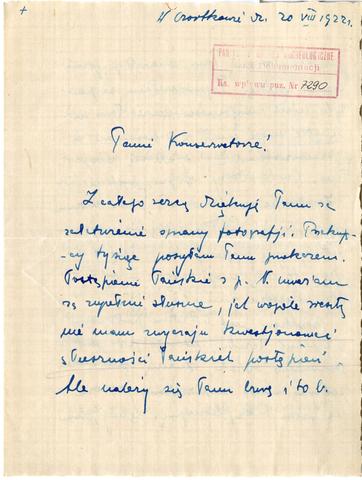 +
W Czortkowie dn. 20 VIII 1922 r.
PAŃSTWOWE ARCHEOLOGICZNE
Ks. wpływu poz. Nr 7290
Panie Konserwatorze!
Z całego serca dziękuję Panu za
załatwienie sprawy fotografji.
-cy tysięcy posyłam Panu przekazem.
Postąpienie Pańskie z p. N. uważam
za zupełnie słuszne, jak wogóle zresztą
nie mam zwyczaju kwestjonować
słuszności Pańskich postąpień.
Ale należy się Panu i to b.